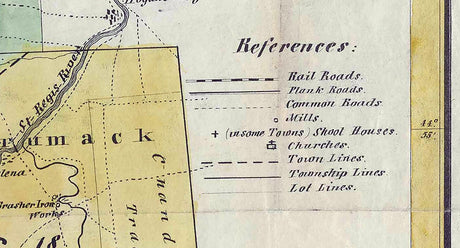 References:
Rail Roads.
Plank Roads.
Common Roads
Mills.
(in some Towns) Skool Houses.
Churches.
Town Lines.
Township Lines
Lot Lines.
44°
55'
St Regis River
mack
Iron
Works
18